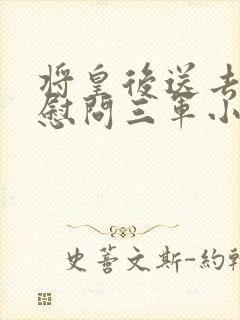 將皇後送去
慰問三軍小
史蒂文斯-約翰